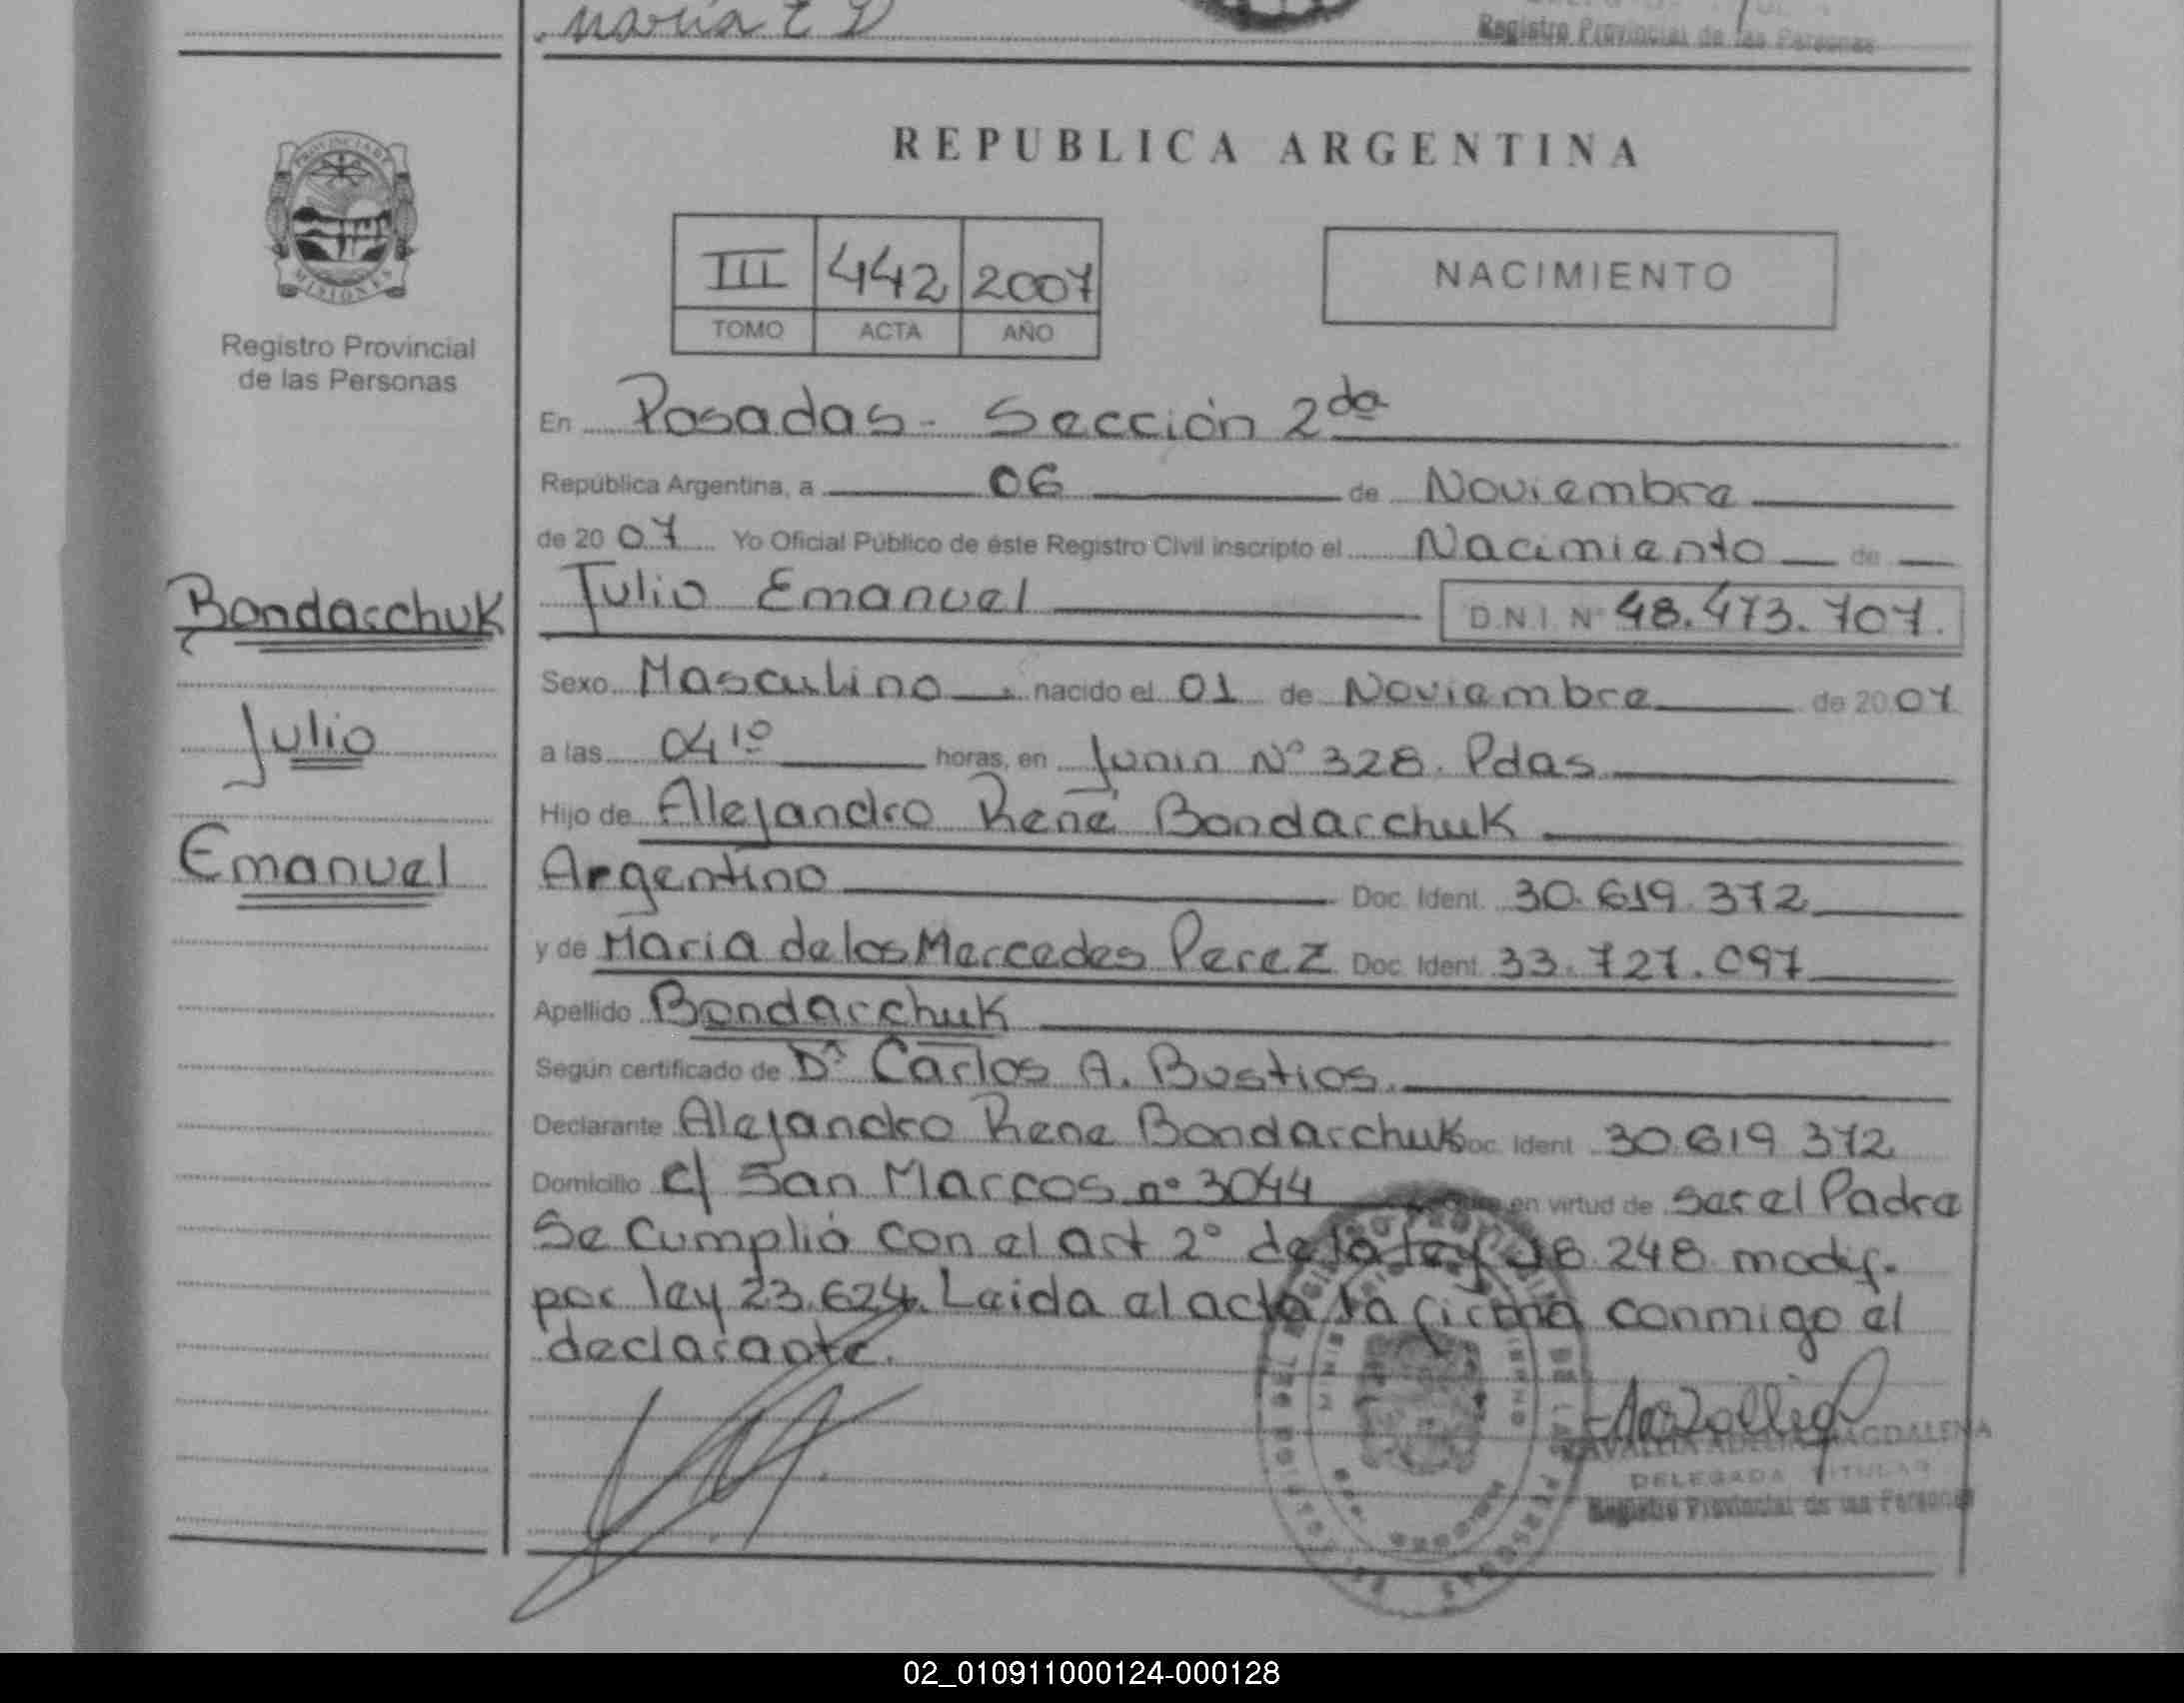 Maria E D
Registro Provincial de las Personas
PROVINCIA DE
MISIONES
Registro Provincial
de las Personas
Bondarchuk
Julio
Emanuel
REPUBLICA ARGENTINA
III 442 2007
TOMO ACTA AÑO
NACIMIENTO
En Posadas - Sección 2da
República Argentina, a 06 de Noviembre
de 2007 Yo Oficial Público de éste Registro Civil inscripto el Nacimiento de
Julio Emanuel D.N.I. Nº 48.473.707.
Sexo Masculino nacido el 01 de Noviembre de 2007
a las 04 10 horas, en Junin Nº 328. Pdas
Hijo de Alejandro René Bondarchuk
Argentino Doc. Ident. 30.619.372
y de Maria de los Mercedes Perez Doc. Ident. 33.727.097
Apellido Bondarchuk
Según certificado de Dr Carlos A. Bustios.
Declarante Alejandro Rene Bondarchuk Doc. Ident 30.619 372
Domicilio c/ San Marcos nº 3044 en virtud de ser el Padre
Se Cumplió con el art 2º de la ley 18.248 modif.
por ley 23.624. Leida el acta la firma conmigo el
declarante.
MAGDALENA
DELEGADA TITULAR
Registro Provincial de las Personas
02_010911000124-000128